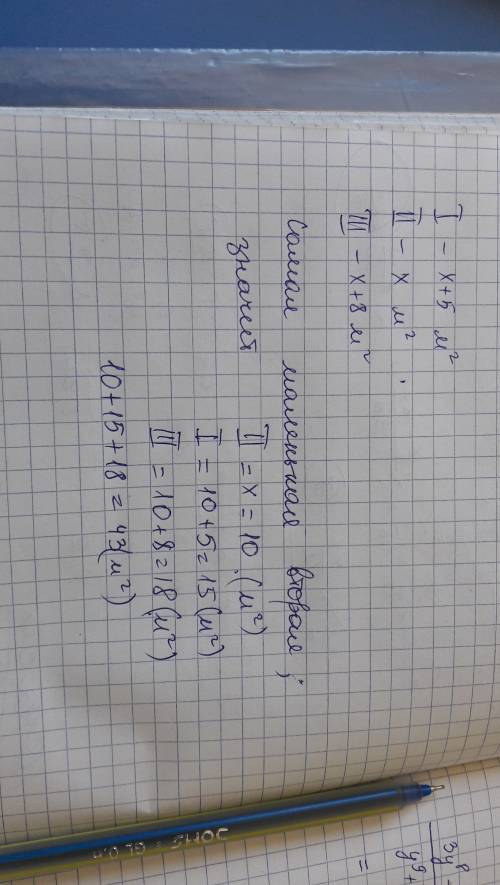 I - x+5 м²
II - x м².
III - x+8 м²
самая маленькая вторая;
значит II = x = 10 (м²)
I = 10+5=15(м²)
III = 10+8=18(м²)
10+15+18=43(м²)